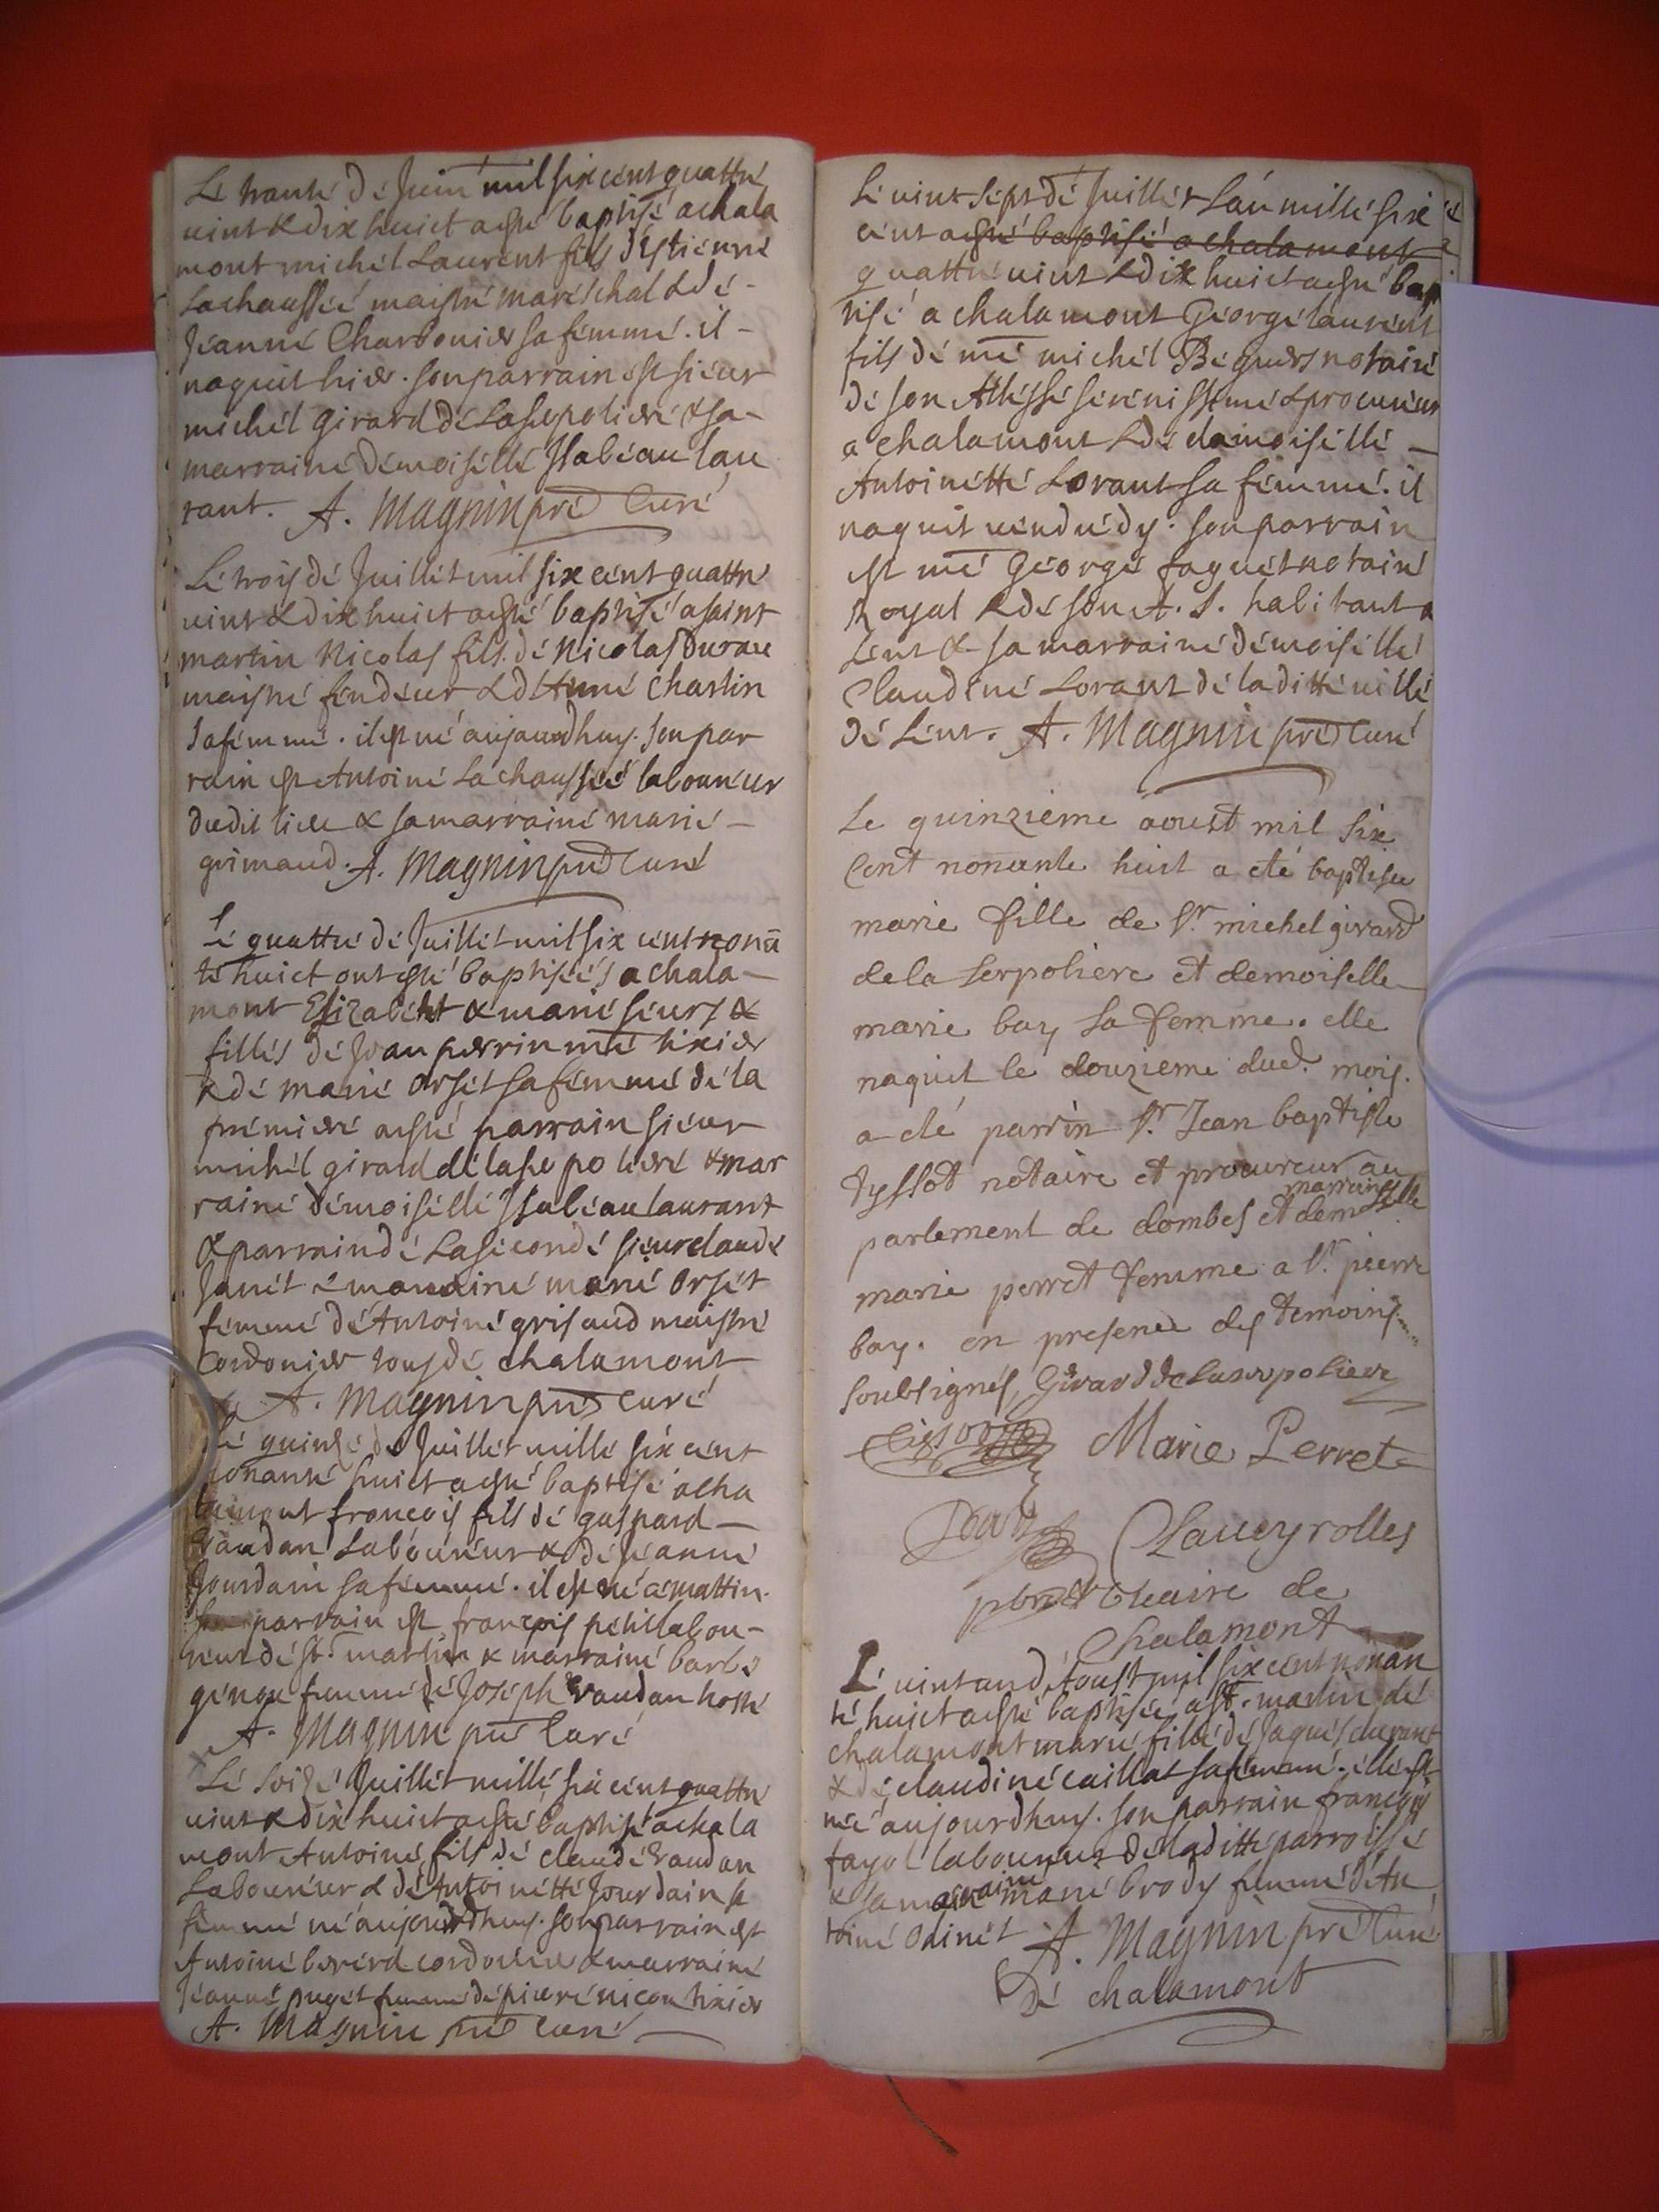 Le trante de Juin mil six cent quattre
uint & dix huict a esté baptisé a chala
mont michel Laurent fils d'Estienne
Lachaussée maistre mareschal & de -
Jeanne Charbonier sa femme. il -
naquit hier. son parrain est sieur
michel girard de Laserpoliere & sa -
marraine demoiselle Isabeau lau
rant. A. Magnin pre Curé
Le trois de Juillet mil six cent quattre
uint & dix huict a esté baptisé a saint
martin Nicolas fils de Nicolas Durau
maistre fendeur & d'Anne Charlin
sa femme. il est né aujourdhuy. son par
rain est Antoine La chaussée laboureur
dudit lieu & sa marraine marie -
grimaud. A. Magnin pre Curé
Le quattre de Juillet mil six cent nonā
te huict ont esté baptisées a chala -
mont Elizabeht & marie seurs &
filles de Jean perrin me tixier
& de marie orset sa femme de la
premiere a esté parrain sieur
michel girard de lase po liere & mar
raine demoiselle Isabeau laurant
& parrain de La seconde sieur claude
Janet e marraine marie orset
femme de Antoine grisaud maistre
Cordonier tous de chalamont
A. Magnin pre Curé
Le quinse de Juillet mille six cent
nonante huict a esté baptisé a cha
lamont françois fils de gaspard -
Vaudan Laboureur & de Jeanne
Jourdain sa femme. il est né ce mattin.
son parrain est françois petit labou -
reur de st. martin & marraine barbe
genou femme de Joseph Vaudan hoste
A. Magnin pre Curé
Le seise Juillet mille six cent quattre
uint & dix huict a esté baptisé a chala
mont Antoine fils de claude Vaudan
Laboureur & de Antoinette Jourdain sa
femme né aujourdhuy. son parrain est
Antoine berérd cordonier & marraine
Jeanne puget femme de pierre nicou tixier
A. Magnin pre curé
Le uint sept de Juillet L'an mille six
cent a esté baptisé a chalamont
quattre uint & dix huict a esté bap
tisé a chalamont George laurent
fils de me michel Beguers notaire
de son Altesse serenissime & procureur
a chalamont & de damoiselle -
Antoinette Lorant sa femme. il
naquit vendredy. son parrain
est me George faguet notaire
Royal & de son A. S. habitant a
Lent & sa marraine demoiselle
Claudine Lorant de laditte uille
de Lent. A. Magnin pre Curé
Le quinzieme aoust mil six
Cent nonante huit a eté baptisee
marie fille de sr. michel girard
de la serpoliere et demoiselle
marie bay sa femme. elle
naquit le douzieme dud. mois.
a eté parrin sr. Jean baptiste
tyssot notaire et procureur au
parlement de dombes et marraine demoiselle
marie perret femme a sr. pierre
bay. en presence des temoins
soubsignés, Girard de Laserpoliere
Tissot Marie Perret
Laueyrolles
pbre vicaire de
Chalamont
Le uint and'Aoust mil six cent nonan
te huict a esté baptisée a st. martin de
chalamont marie fille de Jaques durant
& de claudine caillat sa femme. elle est
née aujourdhuy. son parrain françois
fayol laboureur de laditte parroisse
& sa marraine marie brody femme d'An
toine odinet A. Magnin pre Curé
De chalamont